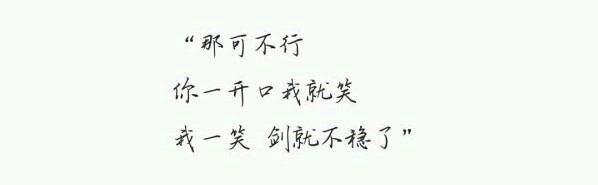 “那可不行
你一开口我就笑
我一笑 剑就不稳了”